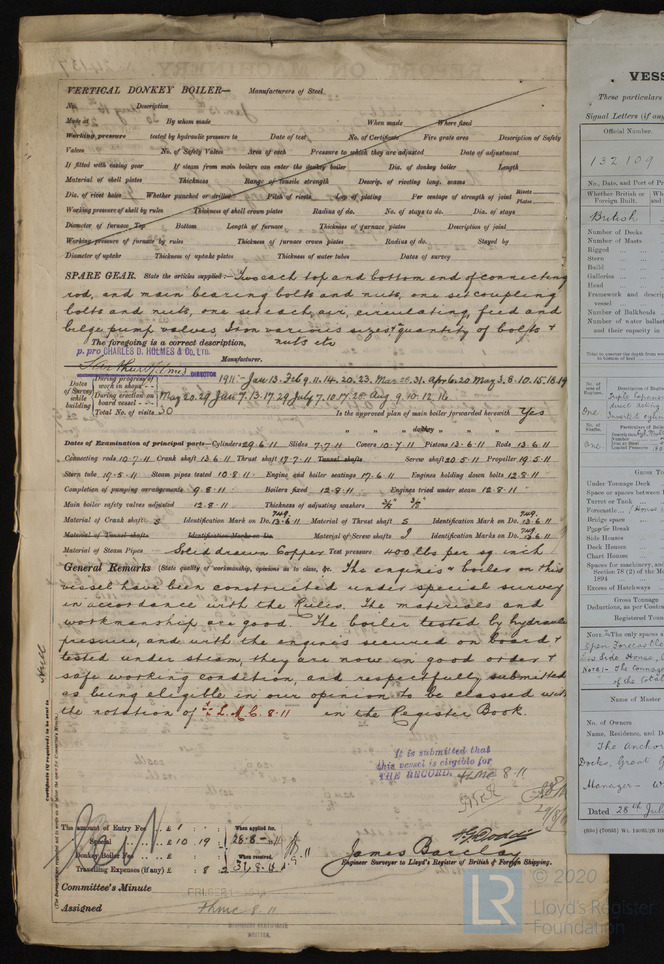 VERTICAL DONKEY BOILER— Manufacturers of Steel
No. Description
Made at By whom made When made Where fixed
Working pressure tested by hydraulic pressure to Date of test No. of Certificate Fire grate area Description of Safety
Valves No. of Safety Valves Area of each Pressure to which they are adjusted Date of adjustment
If fitted with easing gear If steam from main boilers can enter the donkey boiler Dia. of donkey boiler Length
Material of shell plates Thickness Range of tensile strength Descrip. of riveting long. seams
Dia. of rivet holes Whether punched or drilled Pitch of rivets Lap of plating Per centage of strength of joint Rivets Plates
Working pressure of shell by rules Thickness of shell crown plates Radius of do. No. of stays to do. Dia. of stays
Diameter of furnace Top Bottom Length of furnace Thickness of furnace plates Description of joint
Working pressure of furnace by rules Thickness of furnace crown plates Radius of do. Stayed by
Diameter of uptake Thickness of uptake plates Thickness of water tubes Dates of survey
SPARE GEAR. State the articles supplied:— Two each top and bottom end of connecting
rod, and main bearing bolts and nuts, one set coupling
bolts and nuts, one set each, air, circulating, feed and
bilge pump valves. Iron various sizes & quantity of bolts &
nuts etc
The foregoing is a correct description,
p. pro CHARLES D. HOLMES & Co. LTD. Manufacturer.
DIRECTOR
Dates of Survey while building
During progress of work in shops - - 1911:- Jan 13. Feb 9. 11. 14. 20. 23. Mar 28. 31. Apr 6. 20. May 3. 8. 10. 15. 18. 19
During erection on board vessel - - - May 20. 29. Jun 7. 13. 17. 29 July 7. 10. 17. 28. Aug 9. 10. 12. 16.
Total No. of visits 30 Is the approved plan of main boiler forwarded herewith Yes
" " " donkey " " "
Dates of Examination of principal parts—Cylinders 29.6.11 Slides 7.7.11 Covers 10.7.11 Pistons 13.6.11 Rods 13.6.11
Connecting rods 10.7.11 Crank shaft 13.6.11 Thrust shaft 17.7.11 Tunnel shafts Screw shaft 20.5.11 Propeller 19.5.11
Stern tube 19.5.11 Steam pipes tested 10.8.11 Engine and boiler seatings 17.6.11 Engines holding down bolts 12.8.11
Completion of pumping arrangements 9.8.11 Boilers fixed 12.8.11 Engines tried under steam 12.8.11
Main boiler safety valves adjusted 12.8.11 Thickness of adjusting washers
Material of Crank shaft S Identification Mark on Do. 749. 13.6.11 Material of Thrust shaft S Identification Mark on Do. 749. 13.6.11
Material of Tunnel shafts Identification Marks on Do. Material of Screw shafts I Identification Marks on Do. 749. 13.6.11
Material of Steam Pipes Solid drawn Copper Test pressure 400 lbs per sq inch
General Remarks (State quality of workmanship, opinions as to class, &c. The engines & boiler on this
vessel have been constructed under special survey
in accordance with the Rules. The materials and
workmanship are good. The boiler tested by hydraulic
pressure, and with the engines secured on board &
tested under steam, they are now in good order &
safe working condition, and respectfully submitted
as being eligible in our opinion to be classed with
the notation of + L.M.C. 8.11 in the Register Book.
It is submitted that
this vessel is eligible for
THE RECORD. + LMC 8.11
Hull
Certificate (if required) to be sent to
The amount of Entry Fee .. £ : : When applied for,
Special .. £ 10 . 19 : 26.8.11
Donkey Boiler Fee .. £ : : When received,
Travelling Expenses (if any) £ : 8 2 31.8.11
James Barclay
Engineer Surveyor to Lloyd's Register of British & Foreign Shipping.
Committee's Minute FRI. SEP 1 - 1911
Assigned + LMC 8.11
MACHINERY CERTIFICATE
WRITTEN.
VESS
These particulars
Signal Letters (if any
Official Number.
132109
No., Date, and Port of
Whether British or Foreign Built.
British
Number of Decks
Number of Masts
Rigged
Stern
Build
Galleries
Head
Framework and descrip
vessel
Number of Bulkheads
Number of water ballast
and their capacity in
No. of sets of Engines.
One
Under Tonnage Deck
Space or spaces between
Turret or Trunk
Forecastle
Bridge space
Poop or Break
Side Houses
Deck Houses
Chart House
Spaces for machinery, and
Section 78 (2) of the
1894
Excess of Hatchways
Gross Tonnage
Deductions, as per Contra
Registered Tonn
Name of Master
No. of Owners
Name, Residence, and D
The Anchor
Docks, Great G
Manager - W
Dated 28th July
© 2020
LR
Lloyd's Register
Foundation